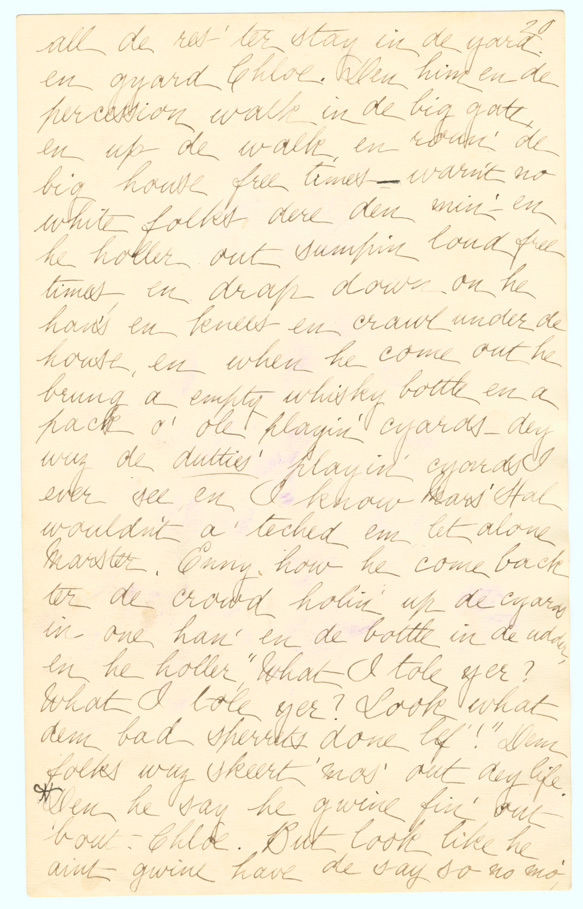 20
all de res' ter stay in de yard
en gyard Chloe. Den him en de
percession walk in de big gate,
en up de walk, en roun' de
big house free times — warn't no
white folks dere den min' - en
he holler out sumpin loud free
times, en drap down on he
han's en knees en crawl under de
house, en when he come out he
brung a empty whisky bottle en a
pack o' ole playin' cyards - dey
wuz de dutties' playin' cyards I
ever see, en I know Mars' Hal
wouldn't a' teched em let alone
Marster. Enny how he come back
ter de crowd holin' up de cyards
in one han' en de bottle in de udder,
en he holler, "What I tole yer?
What I tole yer? Look what
dem bad sperrits done lef'!" Dem
folks wuz skeert 'mos' out dey life.
Den he say he gwine fin' out
'bout - Chloe. But look like he
aint gwine have de say so no mo',